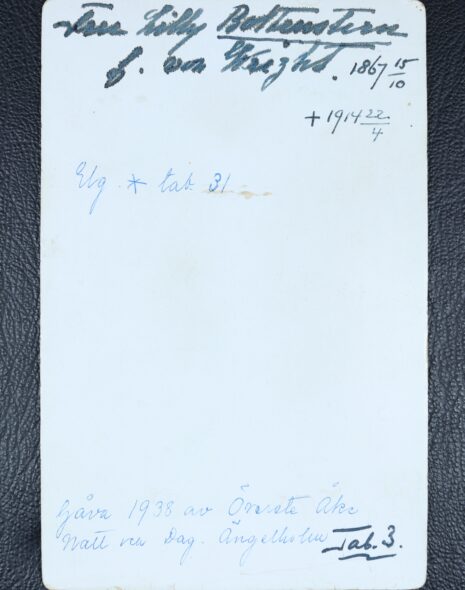 Fru Lilly Bottenstern
f. von Wright. 1867 15/10
+ 1914 22/4
Elg. * tab 31
Gåva 1938 av Överste Åke
Natt och Dag. Ängelholm Tab. 3.